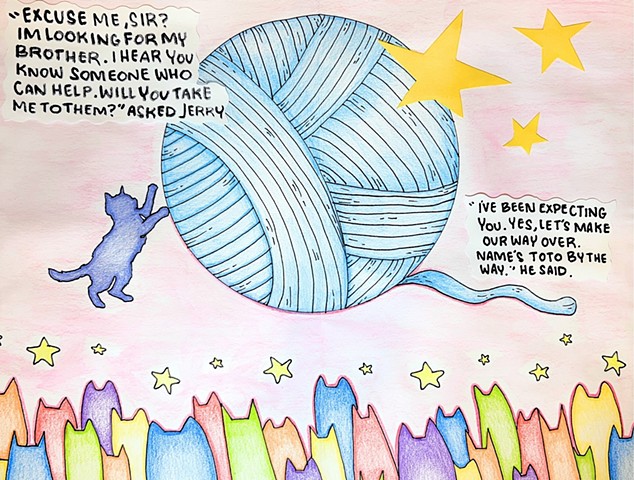 "EXCUSE ME, SIR?
IM LOOKING FOR MY
BROTHER. I HEAR YOU
KNOW SOMEONE WHO
CAN HELP. WILL YOU TAKE
ME TO THEM?" ASKED JERRY
"I'VE BEEN EXPECTING
YOU. YES, LET'S MAKE
OUR WAY OVER.
NAME'S TOTO BY THE
WAY." HE SAID.